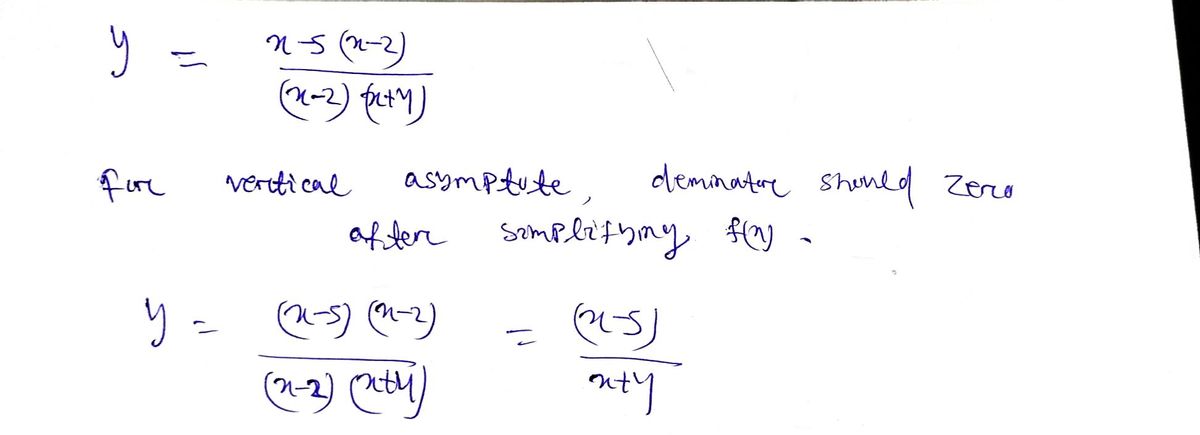 y = x-5 (x-2) / (x-2) (x+4)
for vertical asymptute, deminator should zero
after simplifying f(x) .
y = (x-5) (x-2) / (x-2) (x+4) = (x-5) / x+4